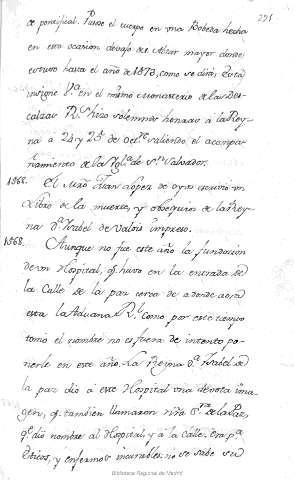 291
de pontifical. Pusose el cuerpo en una Bobeda hecha
en esta ocasion abajo del Altar mayor donde
estuvo hasta el año de 1573, como se dira; Esta
insigne Sª en el mismo Monasterio de las Des-
calzas Rˢ hizo solemnes honras á la Rey-
na á 24 y 25 de Octᵉ saliendo el acompa-
ñamiento de la Yglᵃ de Sⁿ Salvador.
1568. El Mrõ Juan Lopez de oyos escrivió un
Libro de la muerte, y obsequias de la Rey-
na Dª Isabel de Valois impreso.
1568. Aunque no fue este año la fundacion
de un Hospital, q hubo en la entrada de
la Calle de la paz cerca de adonde aora
esta la Aduana Rˡ como por este tiempo
tomó el nombre no es fuera de intento po-
nerle en este año. La Reyna Dª Isabel de
la paz dio á este Hospital una devota Ima-
gen, q tambien llamaron nrã Sʳᵃ de la Paz,
qᵉ dio nombre al Hospital, y á la calle: era pª
Eticos, y enfermos incurables: no se sabe su
Biblioteca Regional de Madrid